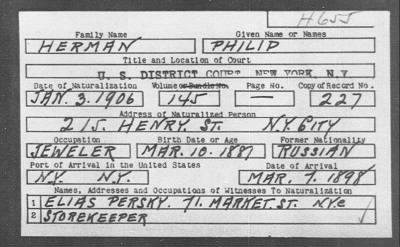 H655
Family Name Given Name or Names
HERMAN PHILIP
Title and Location of Court
U. S. DISTRICT COURT, NEW YORK, N.Y
Date of Naturalization Volume or Bundle No. Page No. Copy of Record No.
JAN. 3. 1906 145 — 227
Address of Naturalized Person
215. HENRY. ST. N.Y. CITY
Occupation Birth Date or Age Former Nationality
JEWELER MAR. 10. 1881 RUSSIAN
Port of Arrival in the United States Date of Arrival
N.Y. N.Y. MAR. 7. 1898
Names, Addresses and Occupations of Witnesses To Naturalization
1 ELIAS PERSKY. 71. MARKET. ST. NYC
2 STOREKEEPER